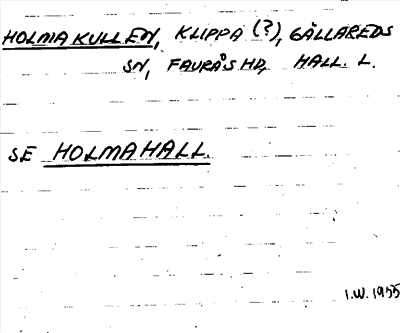 HOLMAKULLEN, KLIPPA (?), GÄLLAREDS
SN, FAURÅS HD, HALL. L.
SE HOLMAHALL.
I.W. 1955